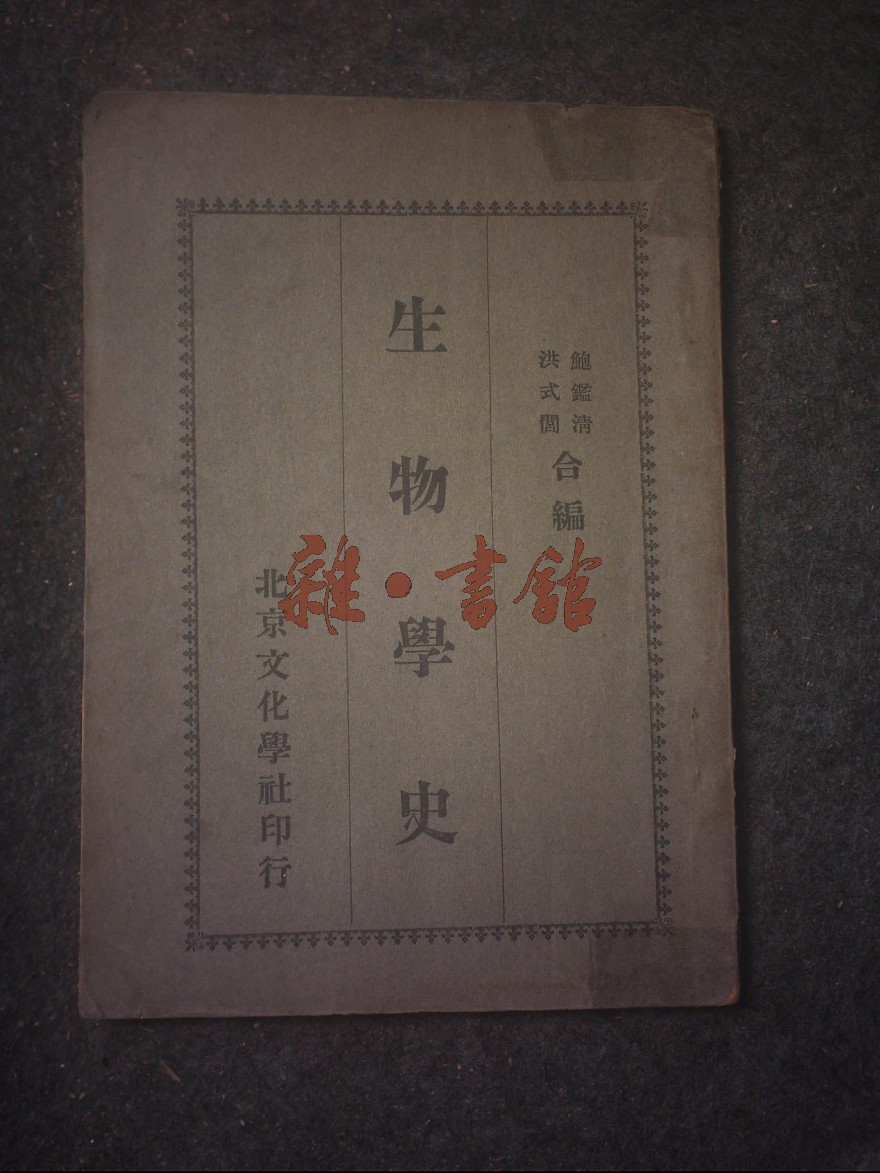 鮑鑑淸
洪式閭
合編
生物學史
北京文化學社印行
雜·書館